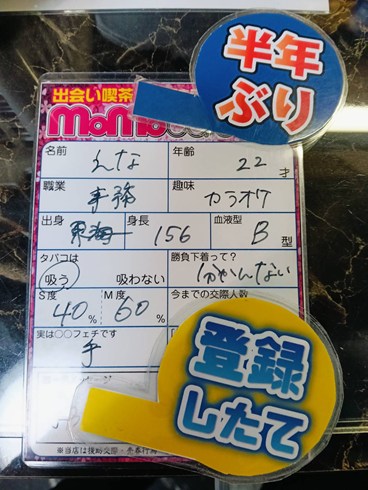 半年
ぶり
出会い喫茶
MoMo
名前 んな 年齢 22才
職業 事務 趣味 カラオケ
出身 身長 156 血液型 B型
タバコは 勝負下着って?
吸う 吸わない 分かんない
S度 M度 今までの交際人数
40% 60%
実は〇〇フェチです
手
登録
したて
※当店は援助交際・売春行為